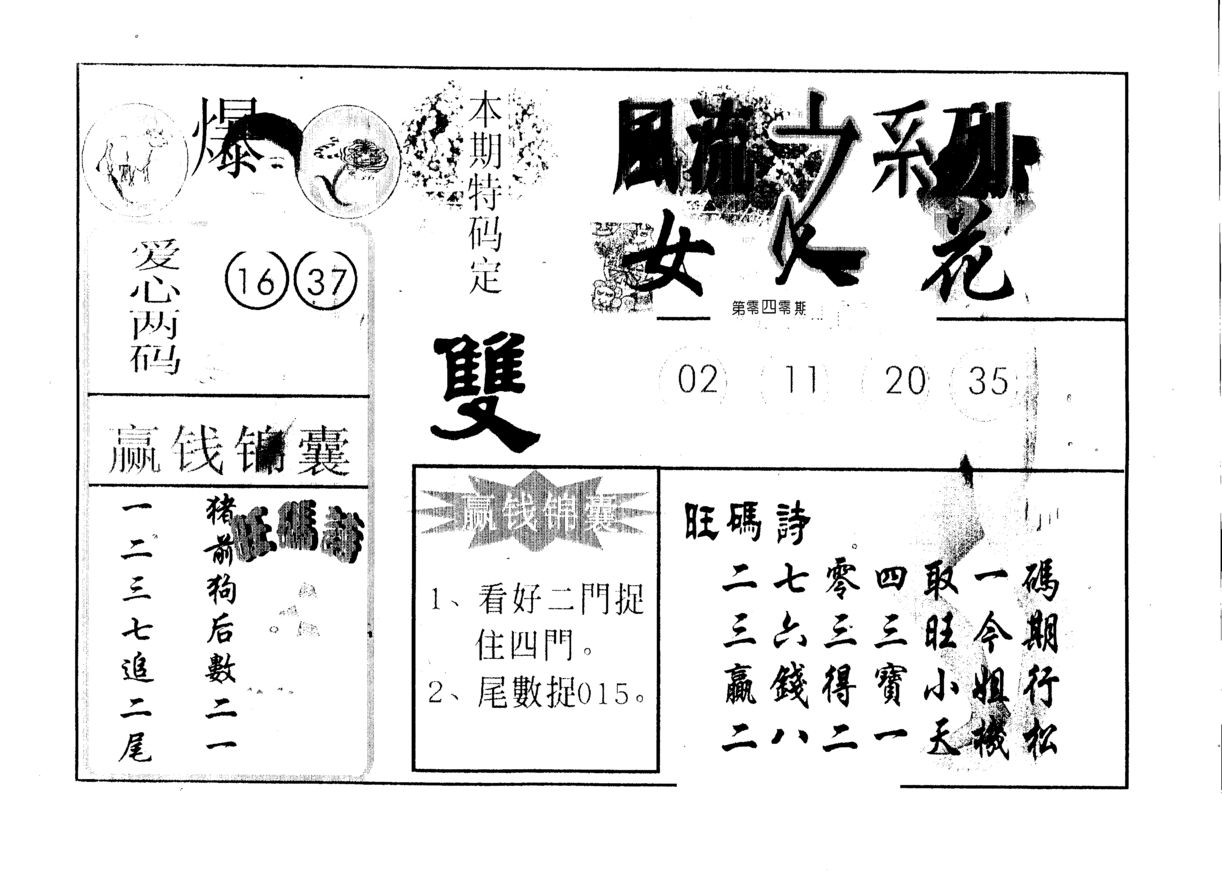 爆
爱心两码
16 37
赢钱锦囊
旺碼詩
猪前狗后數二一
一二三七追二尾
本期特码定
雙
赢钱锦囊
1、看好二門捉
住四門。
2、尾數捉015。
風流之系列
女人花
第零四零期
02 11 20 35
旺碼詩
二七零四取一碼
三六三三旺今期
贏錢得寶小姐行
二八二一天機松